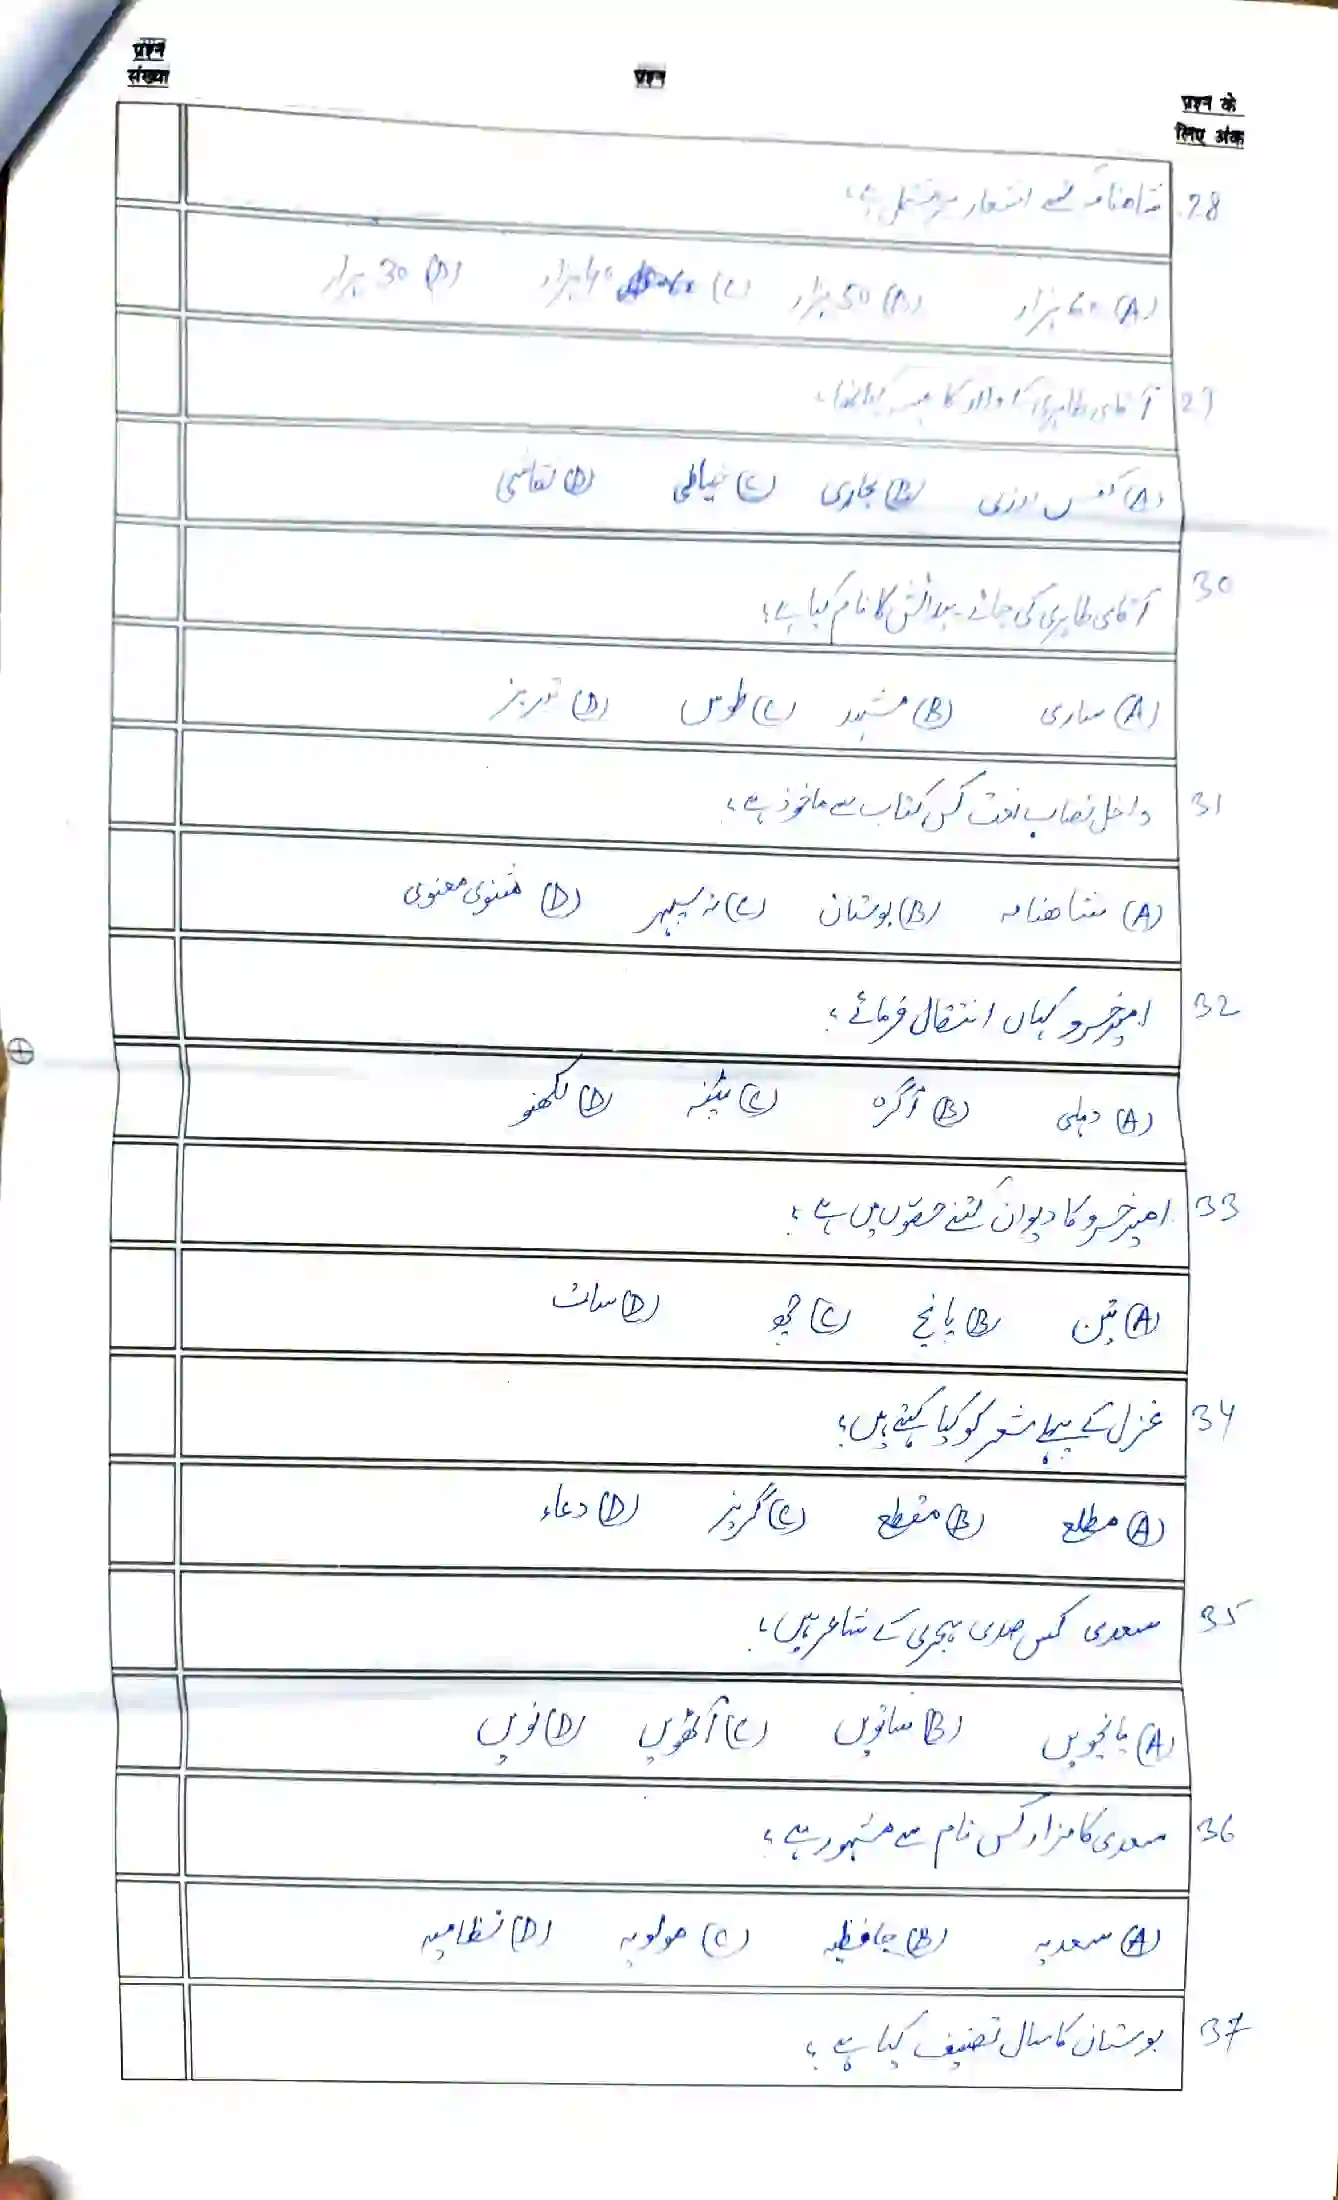 प्रश्न संख्या
प्रश्न
प्रश्न के लिए अंक
28. شاھنامہ کتنے اشعار پر مشتمل ہے؟
(A) 60 ہزار (B) 50 ہزار (C) 40 ہزار (D) 30 ہزار
29 آقای طاہری کا والد کا پیشہ کیا تھا؟
(A) کفش دوزی (B) نجاری (C) خیاطی (D) نقاشی
30 آقای طاہری کی جائے پیدائش کا نام کیا ہے؟
(A) ساری (B) مشہد (C) طوس (D) تبریز
31 داخل نصاب نعت کس کتاب سے ماخوذ ہے؟
(A) شاھنامہ (B) بوستان (C) نہ سپہر (D) مثنوی معنوی
32 امیر خسرو کہاں انتقال فرمائے؟
(A) دہلی (B) آگرہ (C) پٹنہ (D) لکھنو
33 امیر خسرو کا دیوان کتنے حصّوں میں ہے؟
(A) تین (B) پانچ (C) چھ (D) سات
34 غزل کے پہلے شعر کو کیا کہتے ہیں؟
(A) مطلع (B) مقطع (C) گریز (D) دعاء
35 سعدی کس صدی ہجری کے شاعر ہیں؟
(A) پانچویں (B) ساتویں (C) آٹھویں (D) نویں
36 سعدی کا مزار کس نام سے مشہور ہے؟
(A) سعدیہ (B) حافظیہ (C) مولویہ (D) نظامیہ
37 بوستان کا سال تصنیف کیا ہے؟